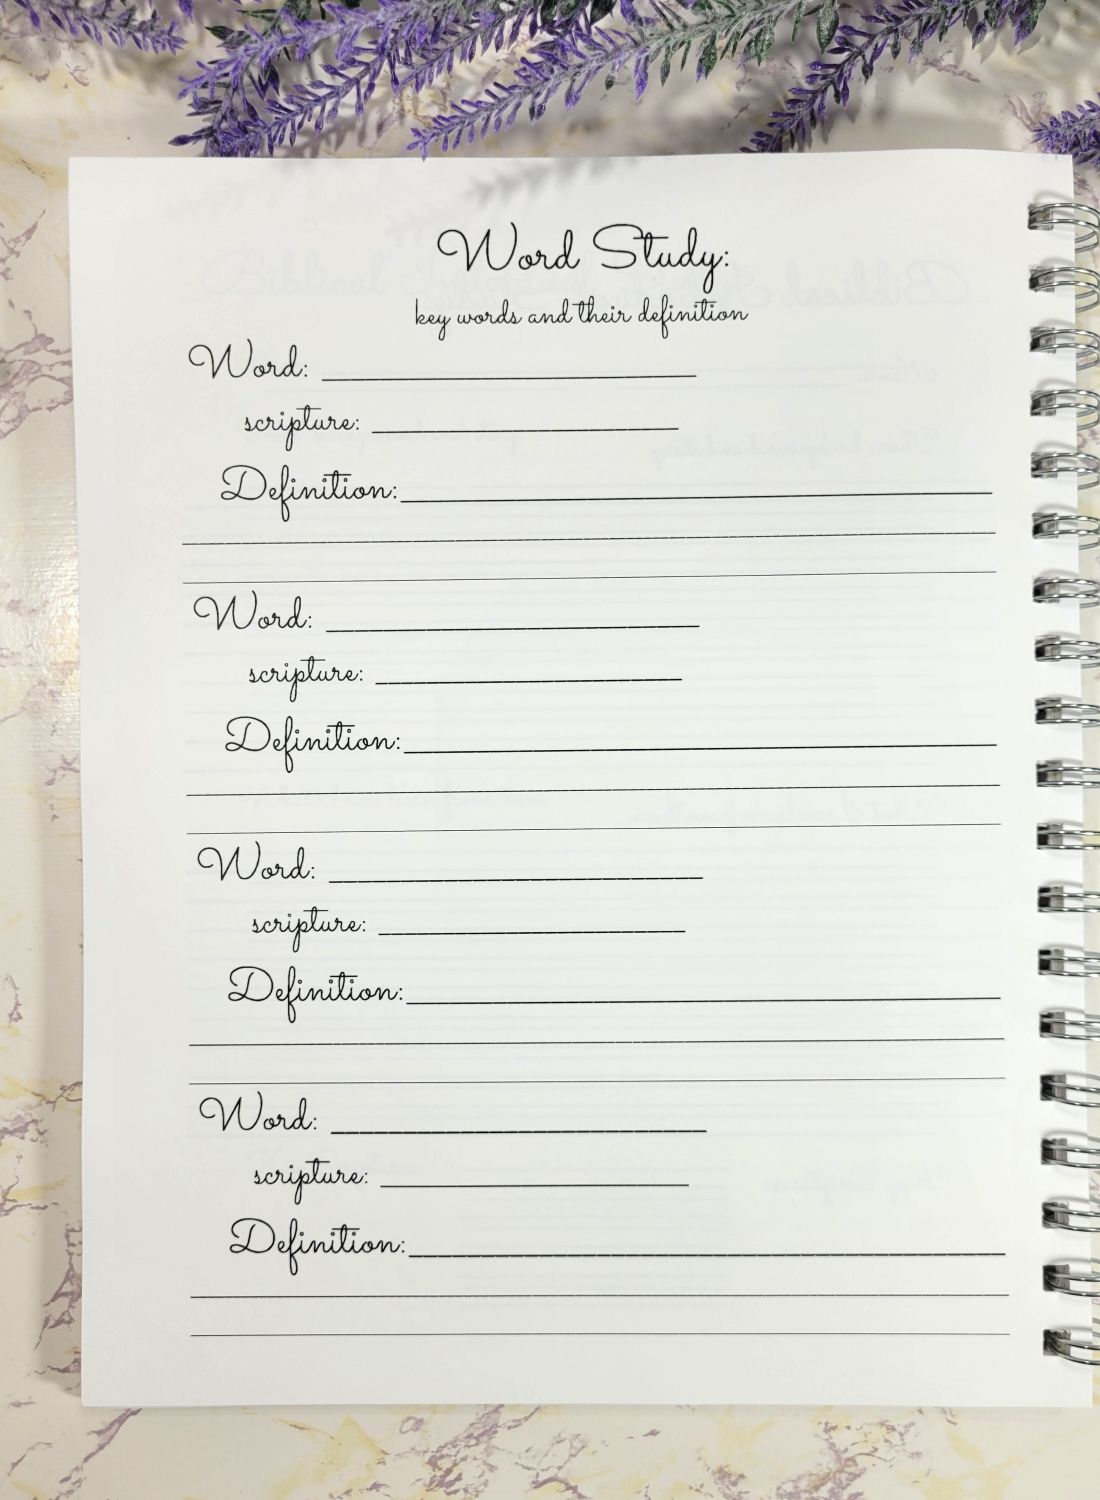 Word Study:
key words and their definition
Word:
scripture:
Definition:
Word:
scripture:
Definition:
Word:
scripture:
Definition:
Word:
scripture:
Definition: